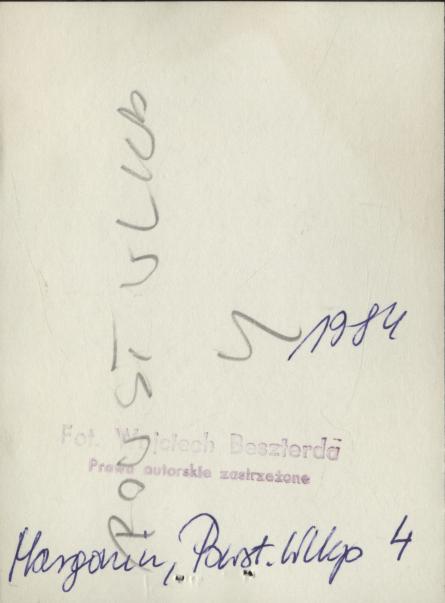 POWST WLKP
4
1984
Fot. Wojciech Beszterda
Prawa autorskie zastrzeżone
Margonin, Powst. Wlkp 4